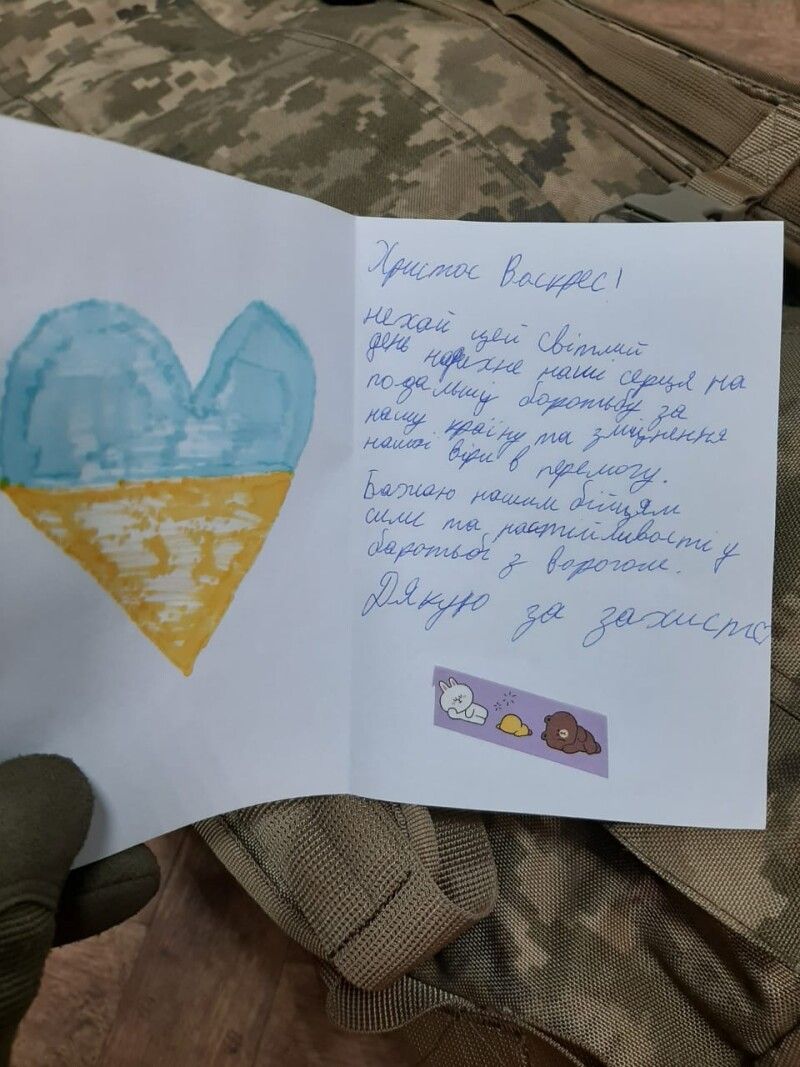 Христос Воскрес!
нехай цей світлий
день надихне наши серця на
подальшу боротьбу за
нашу країну та зміцнення
нашої віри в перемогу.
Бажаю нашим бійцям
сили та наполегливості у
боротьбі з ворогом.
Дякую за захист